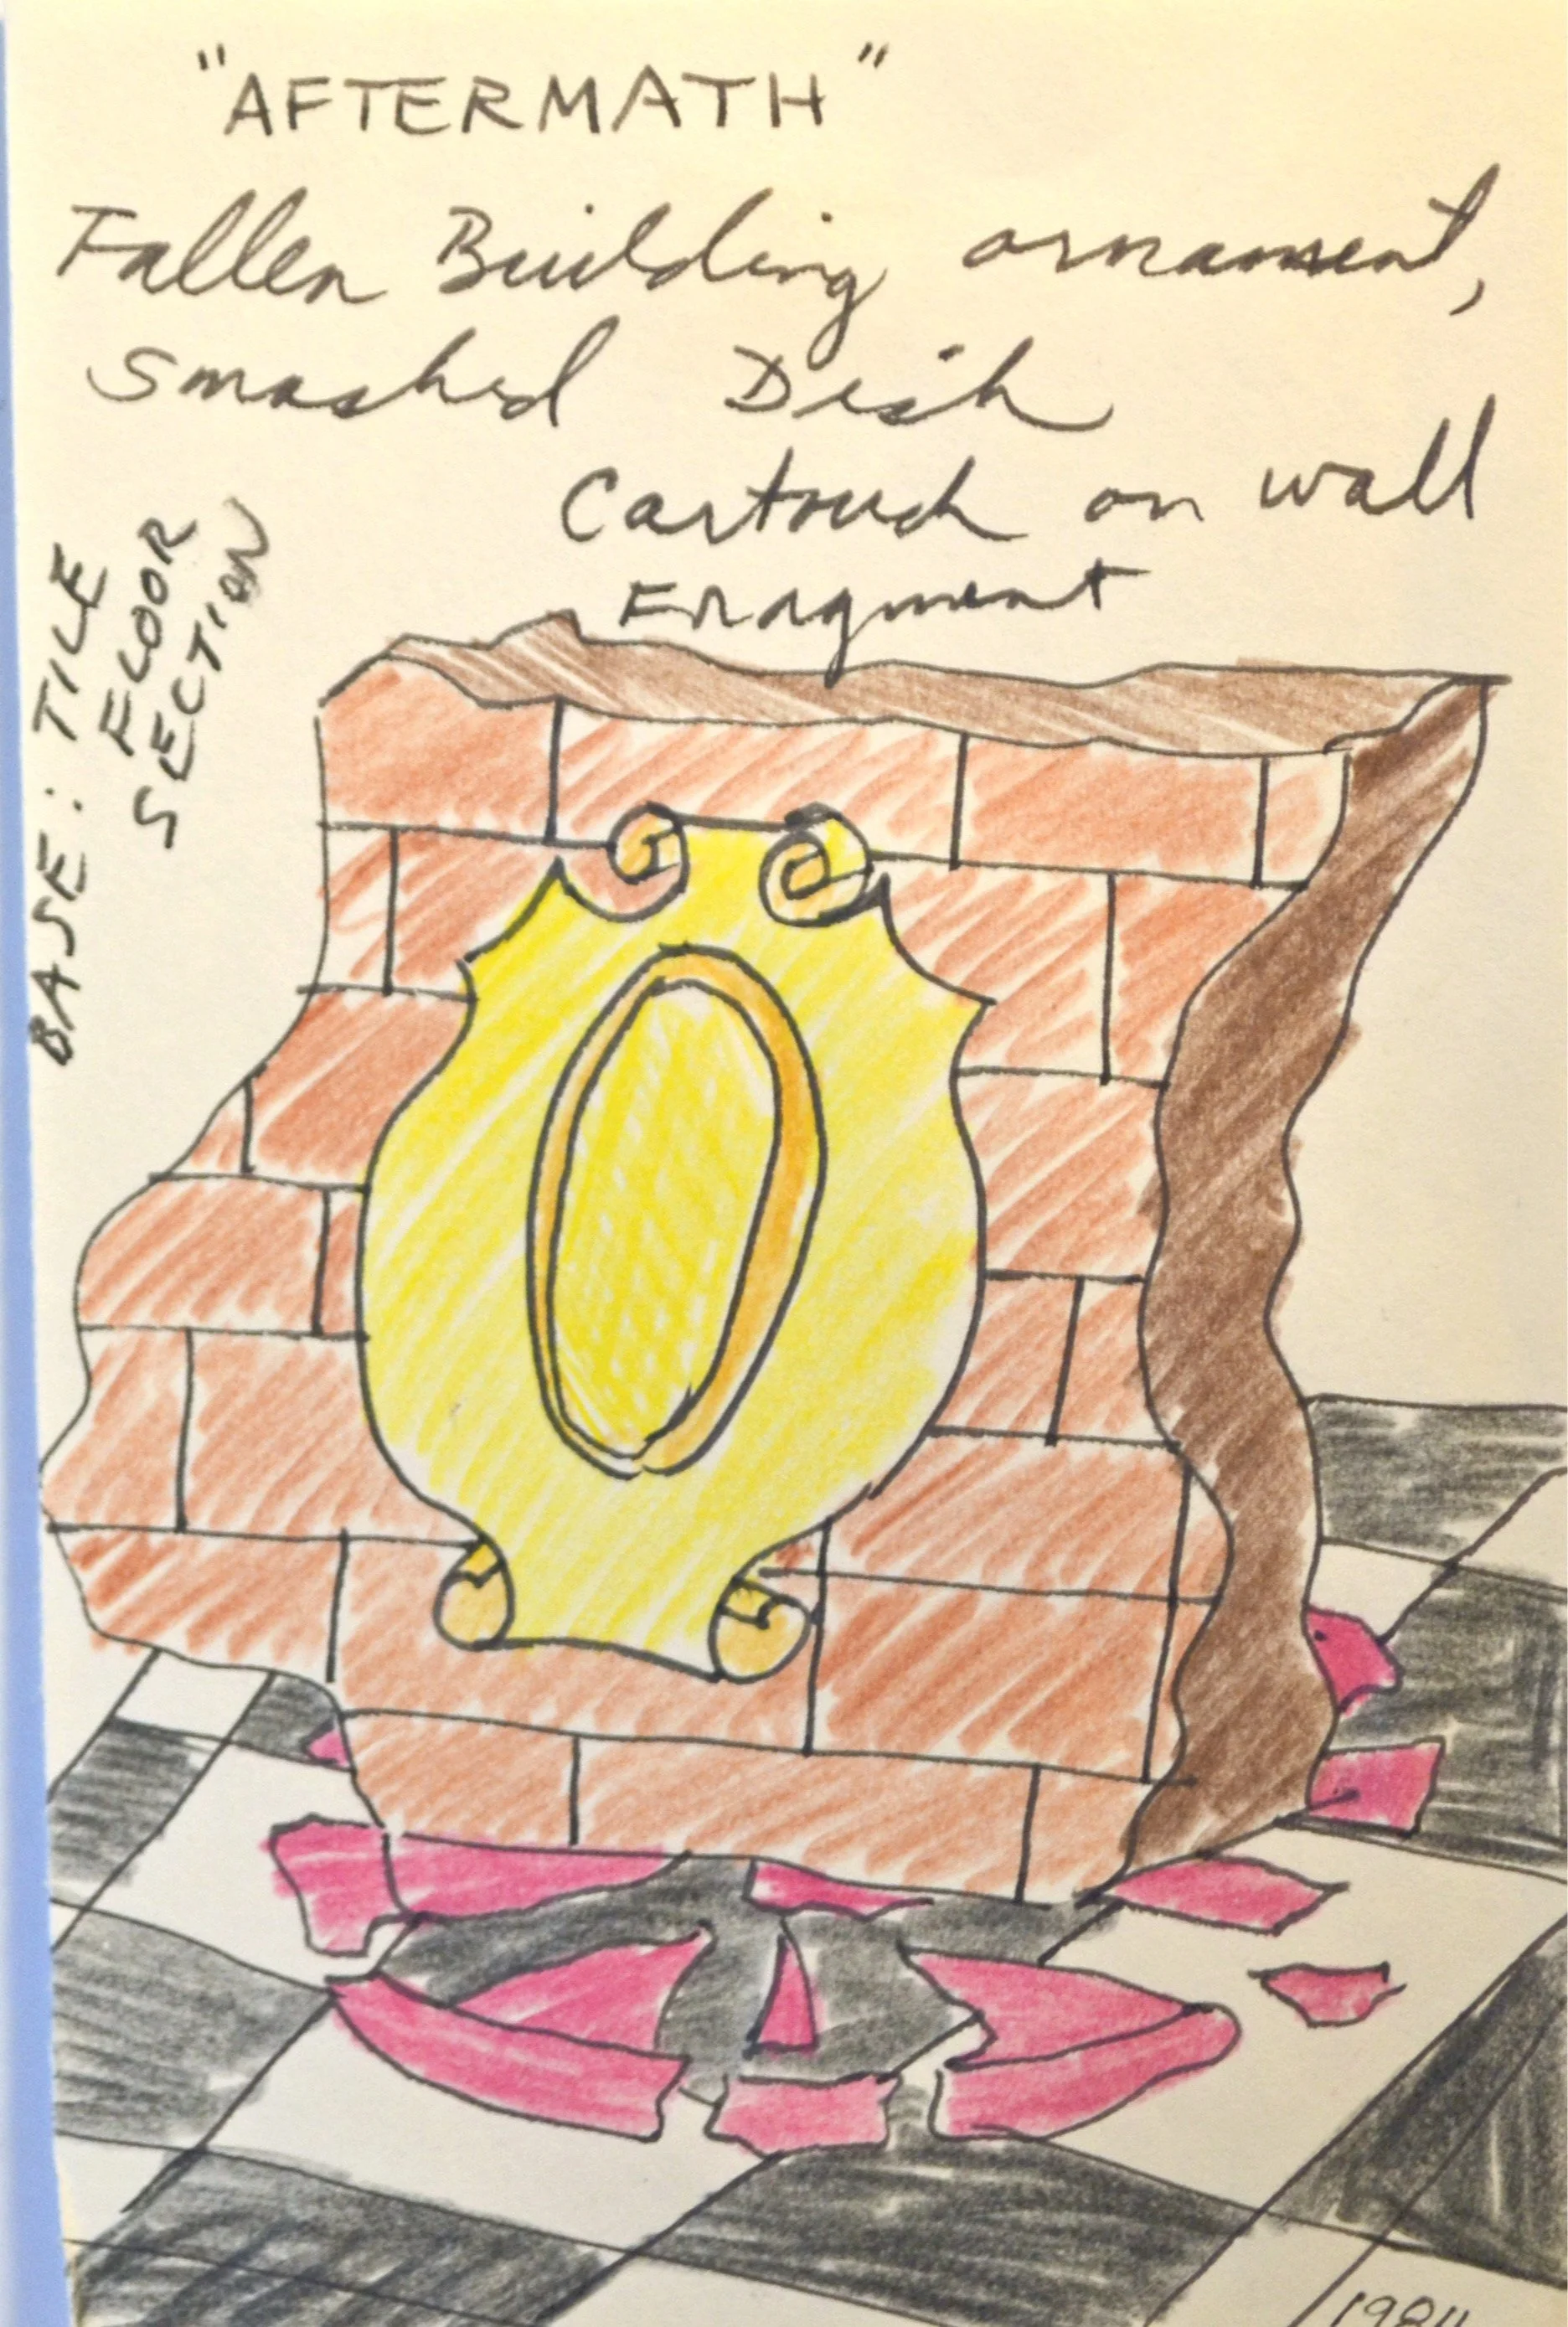 "AFTERMATH"
Fallen Building ornament,
Smashed Dish
Cartouch on wall
Fragment
BASE: TILE
FLOOR
SECTION